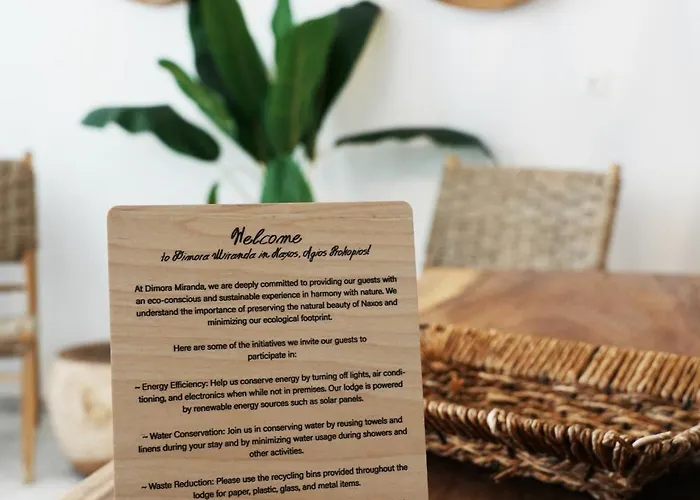 Welcome
to Dimora Miranda in Naxos, Agios Prokopios!
At Dimora Miranda, we are deeply committed to providing our guests with
an eco-conscious and sustainable experience in harmony with nature. We
understand the importance of preserving the natural beauty of Naxos and
minimizing our ecological footprint.
Here are some of the initiatives we invite our guests to
participate in:
~ Energy Efficiency: Help us conserve energy by turning off lights, air condi-
tioning, and electronics when while not in premises. Our lodge is powered
by renewable energy sources such as solar panels.
~ Water Conservation: Join us in conserving water by reusing towels and
linens during your stay and by minimizing water usage during showers and
other activities.
~ Waste Reduction: Please use the recycling bins provided throughout the
lodge for paper, plastic, glass, and metal items.